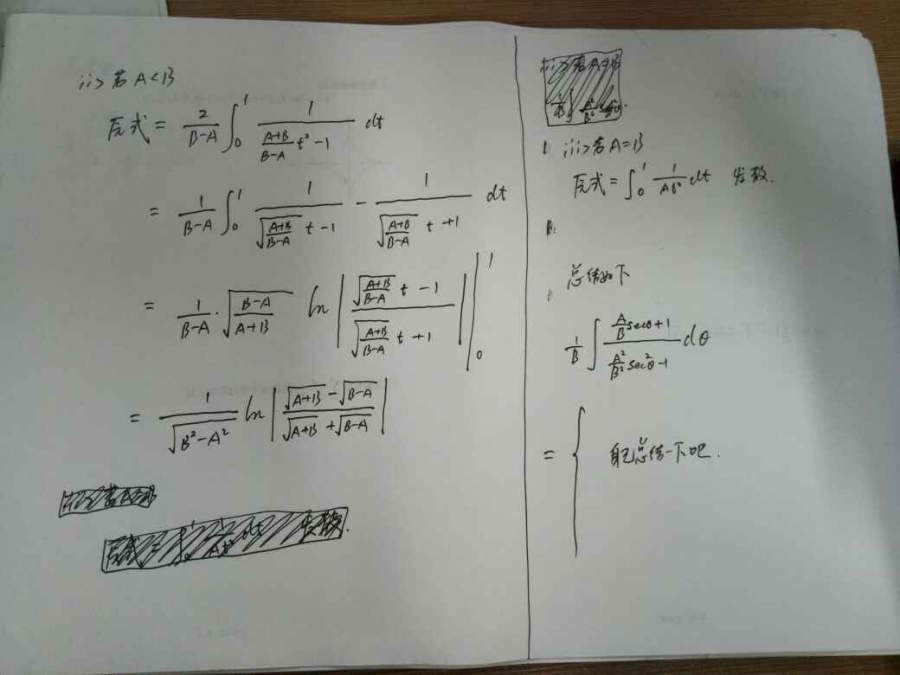 ii> 若 A<B
原式 = \frac{2}{B-A} \int_0^1 \frac{1}{\frac{A+B}{B-A} t^2 - 1} dt
= \frac{1}{B-A} \int_0^1 \frac{1}{\sqrt{\frac{A+B}{B-A}} t - 1} - \frac{1}{\sqrt{\frac{A+B}{B-A}} t + 1} dt
= \frac{1}{B-A} \cdot \sqrt{\frac{B-A}{A+B}} \ln \left| \frac{\sqrt{\frac{A+B}{B-A}} t - 1}{\sqrt{\frac{A+B}{B-A}} t + 1} \right| \Big|_0^1
= \frac{1}{\sqrt{B^2-A^2}} \ln \left| \frac{\sqrt{A+B} - \sqrt{B-A}}{\sqrt{A+B} + \sqrt{B-A}} \right|
iii> 若 A=B
原式 = \int_0^1 \frac{1}{At^2} dt 发散.
总结如下
\frac{1}{B} \int \frac{\frac{A}{B} secθ+1}{\frac{A^2}{B^2} sec^2θ-1} dθ
= { 自己总结一下吧.